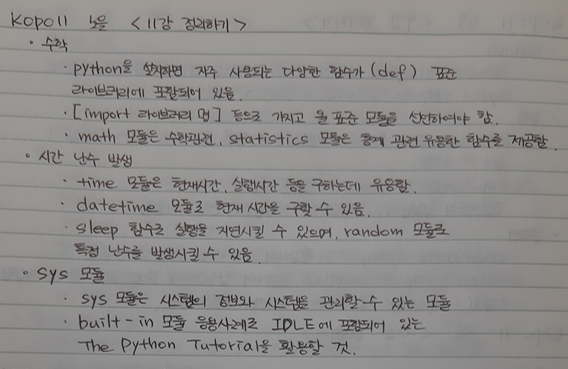 Kopo11 노을 <11강 정리하기>
· 수학
· python을 설치하면 자주 사용되는 다양한 함수가(def) 표준
라이브러리에 포함되어 있음.
· [import 라이브러리 명] 등으로 가지고 올 표준 모듈을 선언하여야 함.
· math 모듈은 수학관련, statistics 모듈은 통계 관련 유용한 함수를 제공함.
· 시간 난수 발생
· time 모듈은 현재시간, 실행시간 등을 구하는데 유용함.
· datetime 모듈로 현재 시간을 구할 수 있음.
· sleep 함수로 실행을 지연시킬 수 있으며, random 모듈로
특정 난수를 발생시킬 수 있음.
· sys 모듈
· sys 모듈은 시스템의 정보와 시스템을 관리할 수 있는 모듈
· built-in 모듈 응용사례로 IDLE에 포함되어 있는
The Python Tutorial을 활용할 것.